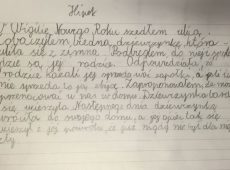 Hipek
W Wigilię Nowego Roku szedłem ulicą
i zobaczyłem biedną dziewczynkę która
trzęsła się z zimna. Podszedłem do niej i spytałem
gdzie są jej rodzice. Odpowiedziała, że
rodzice kazali jej sprzedawać zapałki, a jeśli
nie sprzeda to jej zbiją. Zaproponowałem że może
przenocować u nas w domu. Dziewczynka bardzo
się ucieszyła. Następnego dnia dziewczynka
wróciła do swojego domu, a jej ojciec tak się
ucieszył z jej powrotu, że już nigdy nie był dla niej
zły